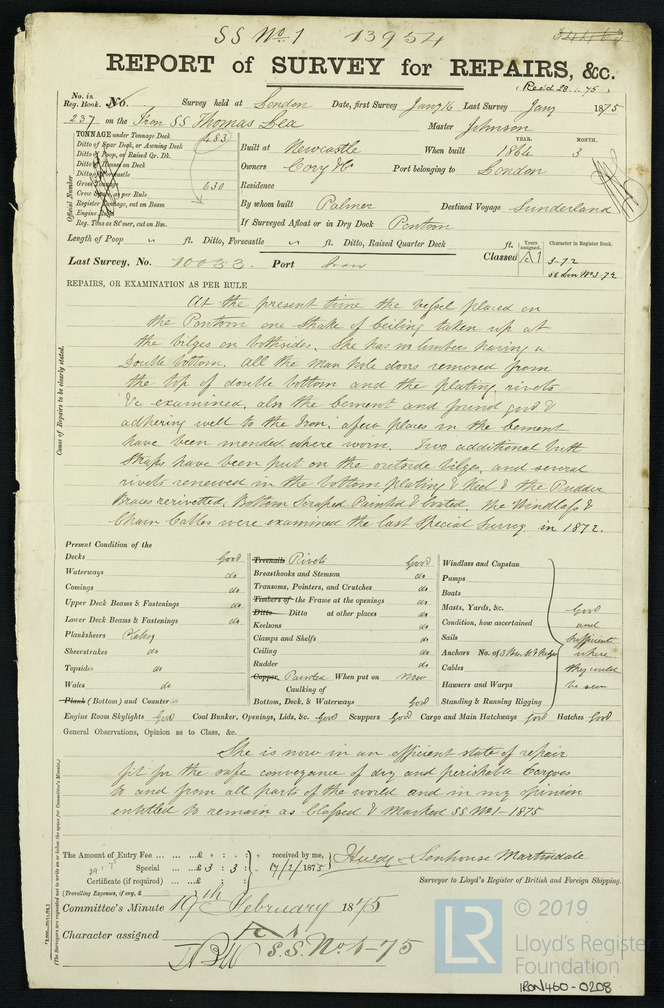 SS No. 1 13954
REPORT of SURVEY for REPAIRS, &c.
(Rec'd 20 .. 75)
No. in Reg. Book. No. Survey held at London Date, first Survey Jany 16 Last Survey Jany 1875
237 on the Iron SS Thomas Lea Master Johnson
TONNAGE under Tonnage Deck 483
Ditto of Spar Deck, or Awning Deck
Ditto of Poop, or Raised Qr. Dk.
Ditto of Houses on Deck
Ditto of Forecastle
Gross Tonnage 630
Crew Space, as per Rule
Register Tonnage, cut on Beam
Engine Room
Reg. Tons as St'mer, cut on Bm.
Official Number
Built at Newcastle When built YEAR. 1864 MONTH. 3
Owners Cory & Co Port belonging to London
Residence
By whom built Palmer Destined Voyage Sunderland
If Surveyed Afloat or in Dry Dock Pontoon
Length of Poop " ft. Ditto, Forecastle " ft. Ditto, Raised Quarter Deck ft.
Last Survey, No. 10033 Port Lon
Classed Years assigned. A1 Character in Register Book. 3-72
SS Lon No 3-72
REPAIRS, OR EXAMINATION AS PER RULE
Cause of Repairs to be clearly stated.
At the present time the Vessel placed on
the Pontoon one Strake of Ceiling taken up at
the bilges on both sides. She has no limbers having a
Double bottom. All the Man hole doors removed from
the top of double bottom and the plating, rivets
&c examined, also the Cement and found good &
adhering well to the Iron, a few places in the cement
have been mended where worn. Two additional butt
Straps have been put on the outside bilge, and several
rivets renewed in the bottom plating & Keel & the Rudder
Braces rerivetted, Bottom Scraped Painted & Coated. The Windlass &
Chain Cables were examined the last Special Survey in 1872.
Present Condition of the
Decks Good
Waterways do
Comings do
Upper Deck Beams & Fastenings do
Lower Deck Beams & Fastenings do
Planksheers Plating
Sheerstrakes do
Topsides do
Wales do
Plank (Bottom) and Counter do
Treenails Rivets Good
Breasthooks and Stemson do
Transoms, Pointers, and Crutches do
Timbers of the Frame at the openings do
Ditto Ditto at other places do
Keelsons do
Clamps and Shelfs do
Ceiling do
Rudder do
Copper Painted When put on New
Caulking of
Bottom, Deck, & Waterways Good
Windlass and Capstan
Pumps
Boats
Masts, Yards, &c.
Condition, how ascertained
Sails
Anchors No. of 3 Bow
Cables
Hawsers and Warps
Standing & Running Rigging
Good
and
Sufficient
where
they could
be seen
Engine Room Skylights Good Coal Bunker, Openings, Lids, &c. Good Scuppers Good Cargo and Main Hatchways Good Hatches Good
General Observations, Opinion as to Class, &c.
She is now in an efficient state of repair
fit for the safe conveyance of dry and perishable Cargoes
to and from all parts of the world and in my opinion
entitled to remain as Classed & Marked SS No 1-1875
The Amount of Entry Fee ... ... ...£ : : received by me,
Special ... ...£ 3 : 3 : 17/2/1875
Certificate (if required) ... ...£
(Travelling Expenses, if any, £
Senhouse Martindale
Surveyor to Lloyd's Register of British and Foreign Shipping.
Committee's Minute 19th February 1875
Character assigned A1
S.S. No. 1-75
(The Surveyors are requested not to write on or below the space for Committee's Minute.)
LR © 2019
Lloyd's Register
Foundation
IRON460-0208